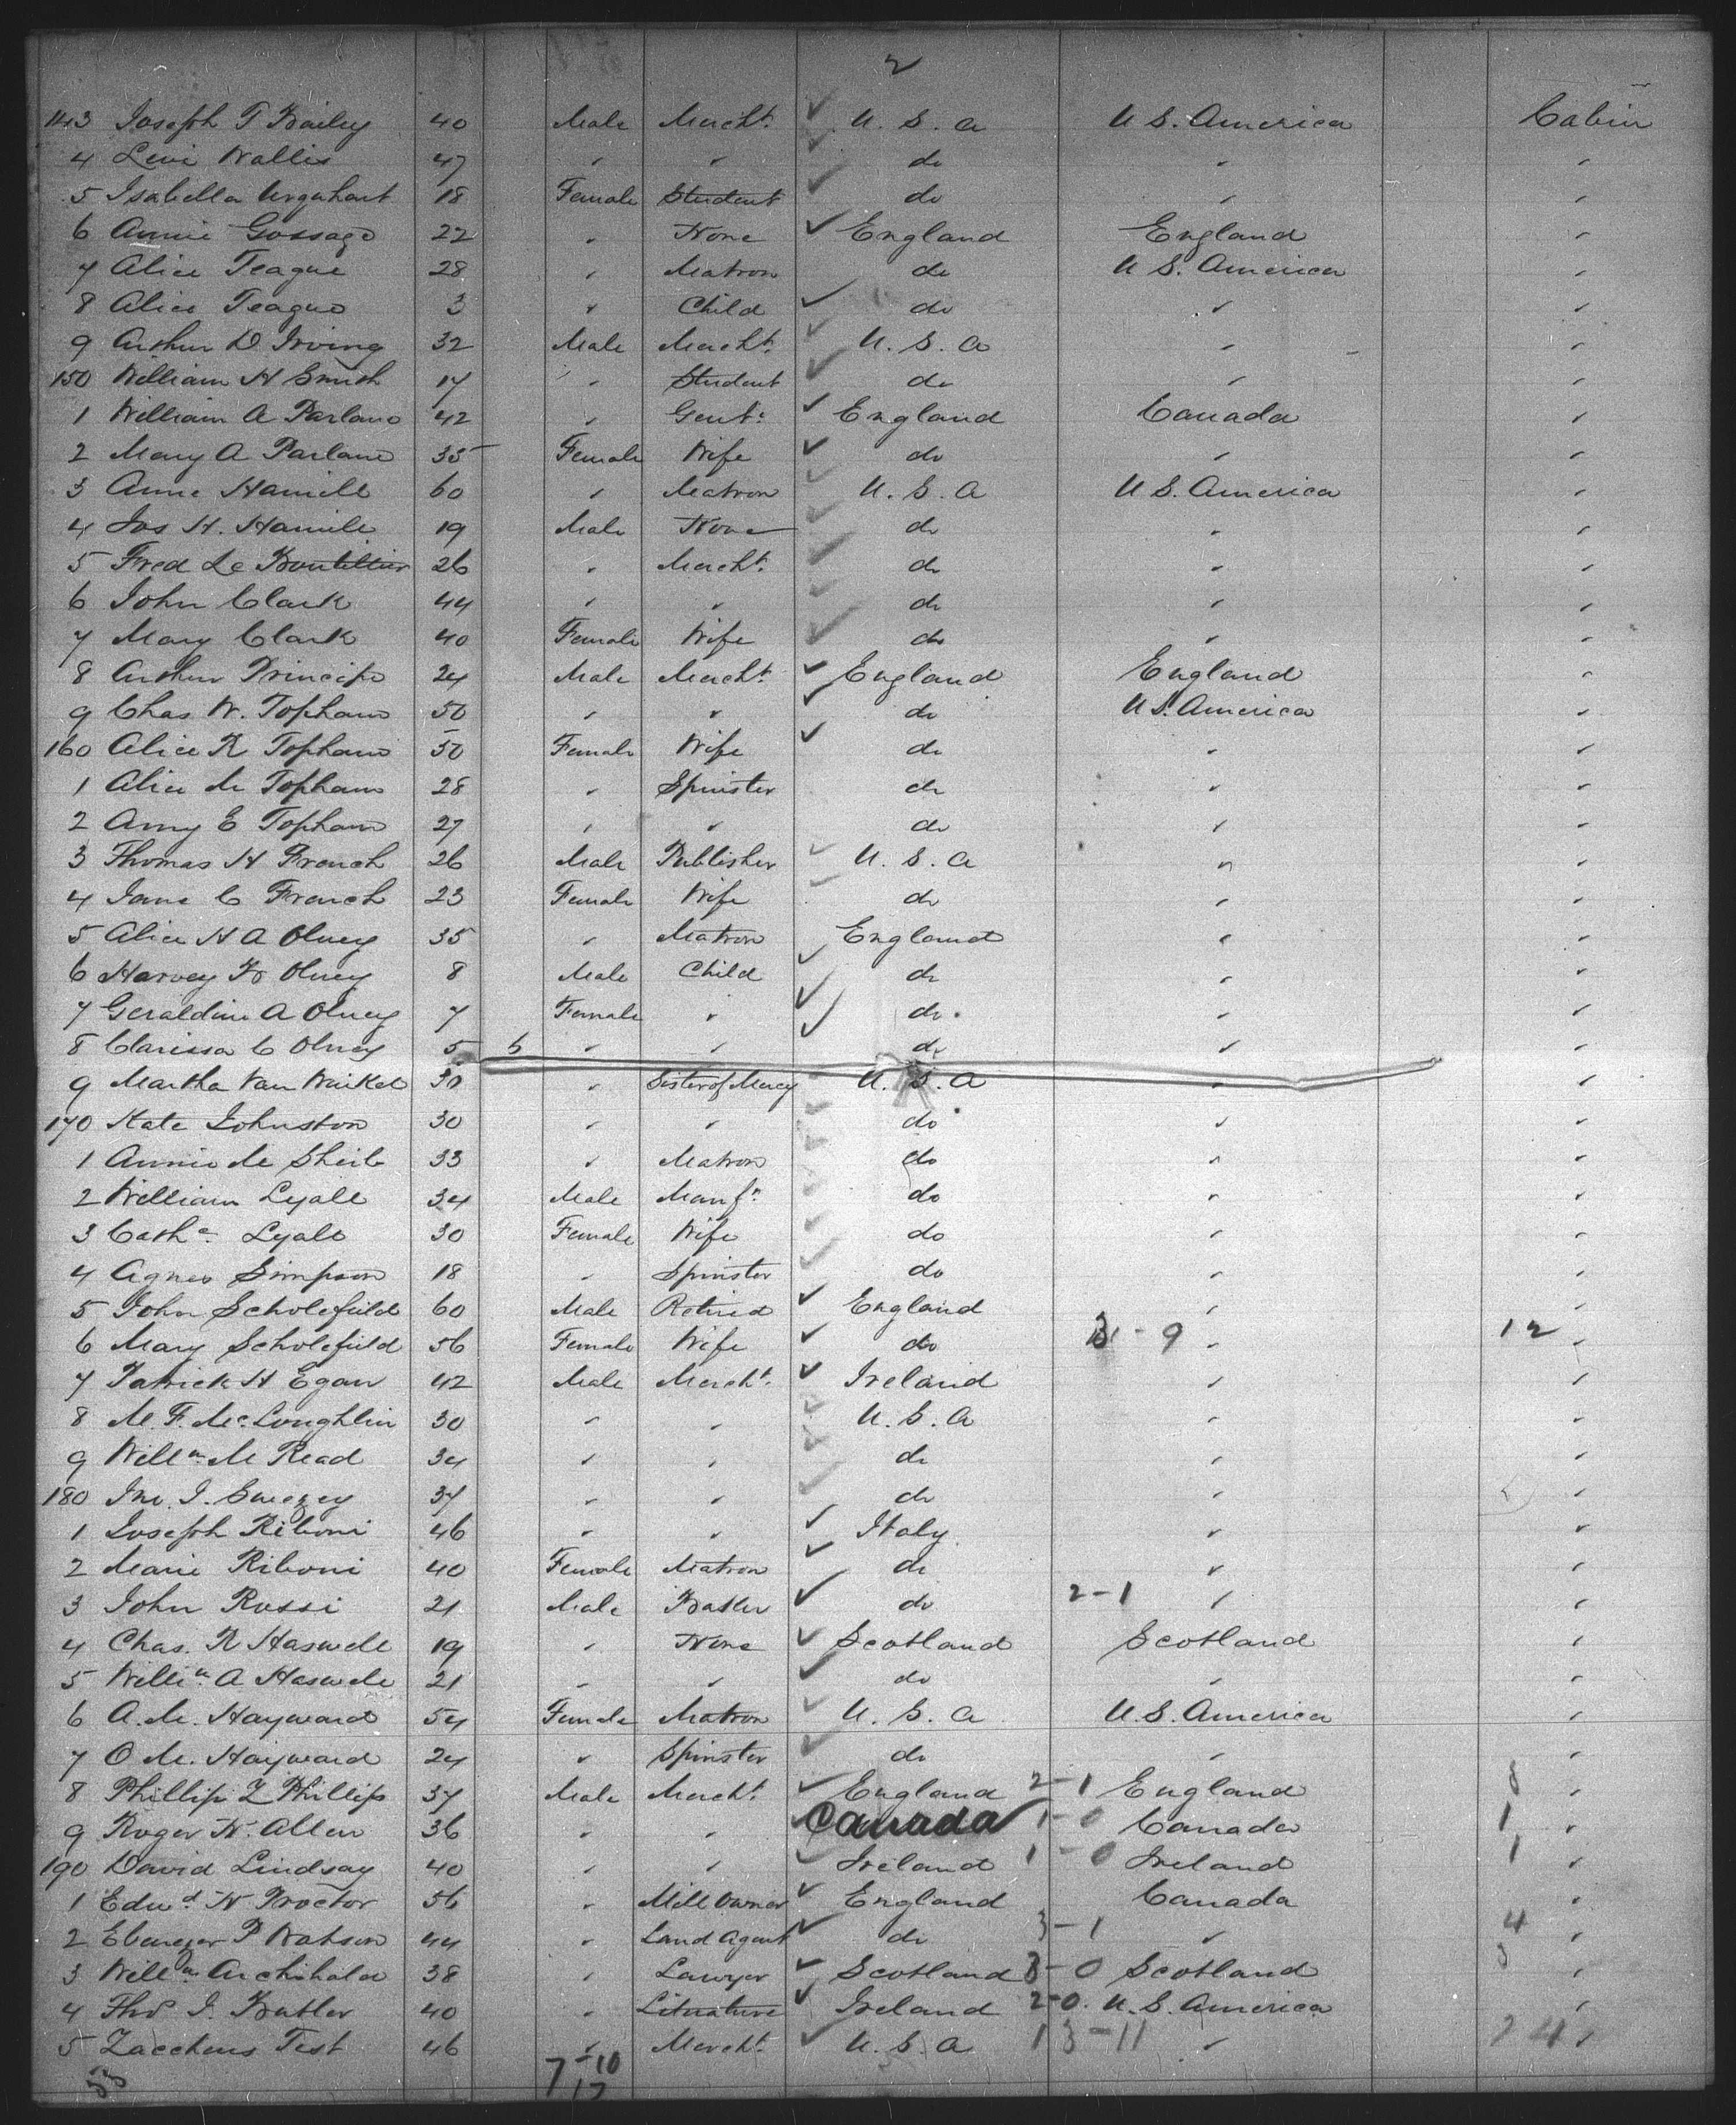 2
143 Joseph T Bailey 40 Male Mercht. U. S. A U S. America Cabin
4 Levi Wallis 47 " " do " "
5 Isabella Urquhart 18 Female Student do " "
6 Annie Gossage 22 " None England England "
7 Alice Teague 28 " Matron do U S. America "
8 Alice Teague 3 " Child do " "
9 Arthur D Irving 32 Male Mercht. U. S. A " "
150 William H Smith 17 " Student do " "
1 William A Parlane 42 " Gent. England Canada "
2 Mary A Parlane 35 Female Wife do " "
3 Anne Hamill 60 " Matron U. S. A U S. America "
4 Jos H. Hamill 19 Male None do " "
5 Fred Le Boutillier 26 " Mercht. do " "
6 John Clark 44 " " do " "
7 Mary Clark 40 Female Wife do " "
8 Arthur Principe 24 Male Mercht. England England "
9 Chas W. Topham 50 " " do U S. America "
160 Alice R Topham 50 Female Wife do " "
1 Alice M Topham 28 " Spinster do " "
2 Amy E Topham 27 " " do " "
3 Thomas H French 26 Male Publisher U. S. A " "
4 Jane C French 23 Female Wife do " "
5 Alice H A Olney 35 " Matron England " "
6 Harvey Olney 8 Male Child do " "
7 Geraldine A Olney 7 Female " do " "
8 Clarissa C Olney 5 5 " " do " "
9 Martha Van Winkel 30 " Sister of Mercy U. S. A " "
170 Kate Johnston 30 " " do " "
1 Annie M Sheib 33 " Matron do " "
2 William Lyall 34 Male Manfr. do " "
3 Cathe. Lyall 30 Female Wife do " "
4 Agnes Simpson 18 " Spinster do " "
5 John Scholefield 60 Male Retired England " "
6 Mary Scholefield 56 Female Wife do 3 - 9 " 12 "
7 Patrick H Egan 42 Male Mercht. Ireland " "
8 M. F. McLoughlin 30 " " U. S. A " "
9 Willm M Read 34 " " do " "
180 Jno. J. Swezey 37 " " do " "
1 Joseph Riboni 46 " " Italy " "
2 Marie Riboni 40 Female Matron do " "
3 John Rossi 21 Male Baker do 2-1 " "
4 Chas. R Haswell 19 " None Scotland Scotland "
5 Willm A Haswell 21 " " do " "
6 A. M. Hayward 54 Female Matron U. S. A U.S. America "
7 O M. Hayward 24 " Spinster do " "
8 Phillip Z Phillips 37 Male Mercht. England 2-1 England 3 "
9 Roger N. Allen 36 " " Canada 1-0 Canada 1 "
190 David Lindsay 40 " " Ireland 1-0 Ireland 1 "
1 Edwd H Proctor 56 " Mill Owner England Canada "
2 Ebenezer P Watson 44 " Land Agent do 3-1 " 4 "
3 Willm Archibald 38 " Lawyer Scotland 3-0 Scotland 3 "
4 Thos J. Butler 40 " Literature Ireland 2-0 U. S. America "
5 Zaccheus Test 46 " Mercht. U. S. A 13-11 " 24 "
53 7-10
17